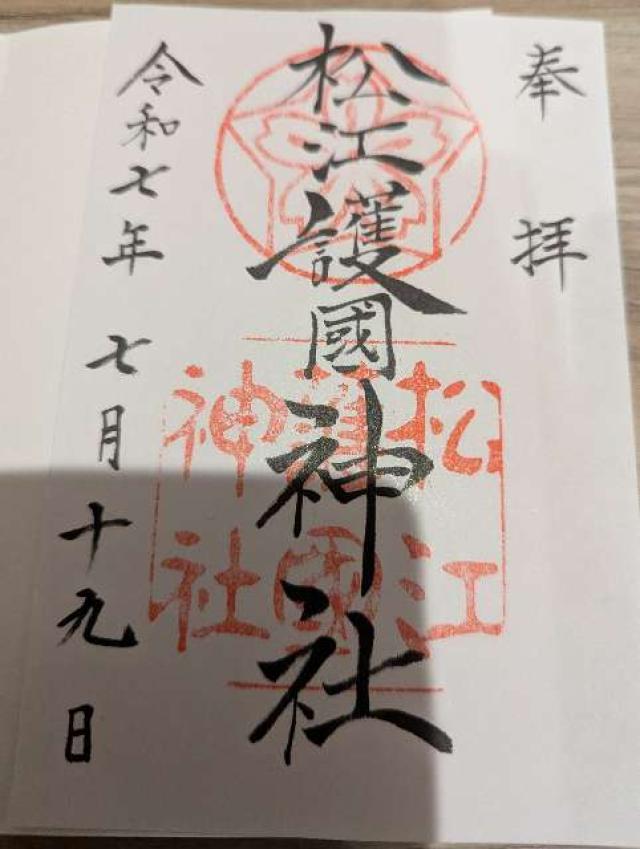 奉拝
松江護國神社
松江
護國
神社
令和七年七月十九日